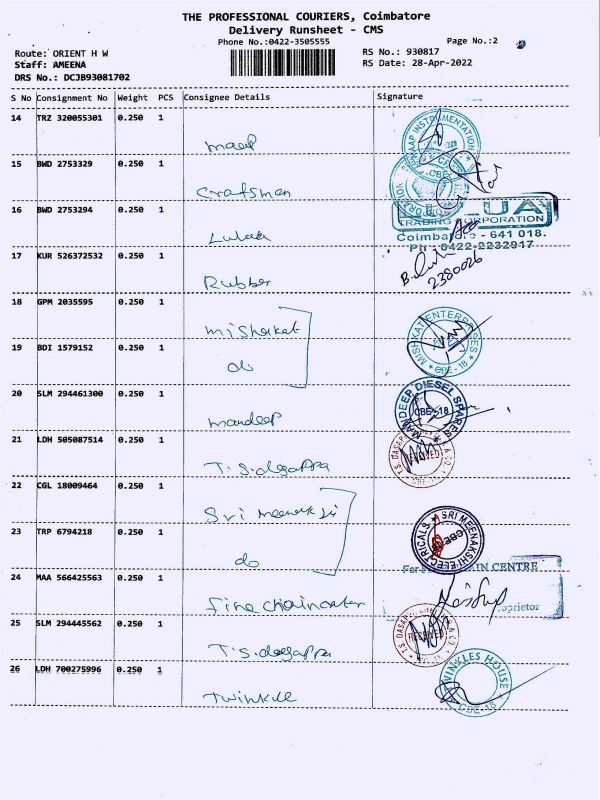 THE PROFESSIONAL COURIERS, Coimbatore
Delivery Runsheet - CMS
Phone No.:0422-3505555 Page No.:2
Route: ORIENT H W RS No.: 930817
Staff: AMEENA RS Date: 28-Apr-2022
DRS No.: DCJB93081702
S No Consignment No Weight PCS Consignee Details Signature
14 TRZ 320055301 0.250 1
maap
INSTRUMENTATION
15 BWD 2753329 0.250 1
Craftsman
CBE
16 BWD 2753294 0.250 1
TRADING CORPORATION
Lulua
Coimbatore - 641 018.
Ph : 0422-2232917
17 KUR 526372532 0.250 1
Rubber
2380026
18 GPM 2035595 0.250 1
Mishakat
MISHKAT ENTERPRISES
CBE-18
19 BDI 1579152 0.250 1
do
20 SLM 294461300 0.250 1
mandeep
MANDEEP DIESEL SPARES
CBE-18
21 LDH 505087514 0.250 1
T.S.dasappa
RECEIVED
22 CGL 18009464 0.250 1
Sri meenakshi
SRI MEENAKSHI ELECTRICALS
23 TRP 6794218 0.250 1
do
24 MAA 566425563 0.250 1
fine chain center
For CHAIN CENTRE
Proprietor
25 SLM 294445562 0.250 1
T.S.dasappa
RECEIVED
26 LDH 700275996 0.250 1
Twinkle
TWINKLES HOUSE
CBE-18